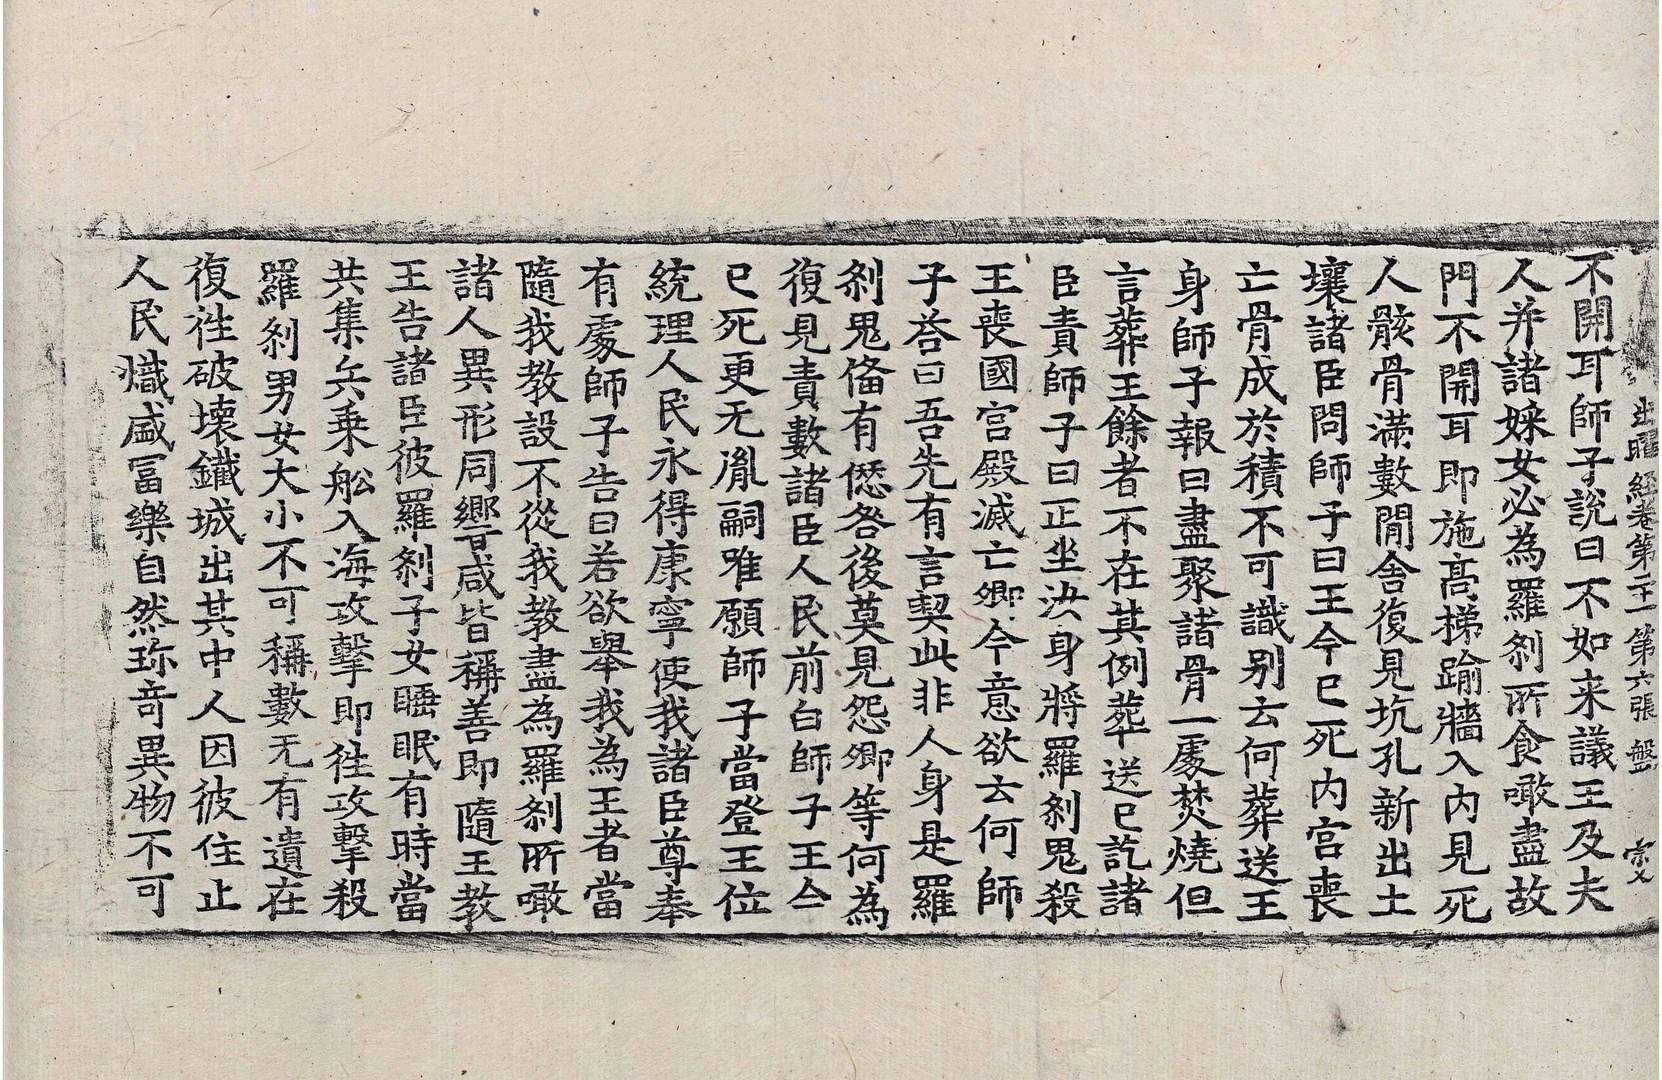 出曜經卷第二十一 第六張 盤
不開耳師子說曰不如來議王及夫
人并諸婇女必為羅剎所食噉盡故
門不開耳即施高梯踰牆入內見死
人骸骨滿數間舍復見坑孔新出土
壤諸臣問師子曰王今已死內宮喪
亡骨成於積不可識別云何葬送王
身師子報曰盡聚諸骨一處焚燒但
言葬王餘者不在其例葬送已訖諸
臣責師子曰正坐汝身將羅剎鬼殺
王喪國宮殿滅亡卿今意欲云何師
子荅曰吾先有言契此非人身是羅
剎鬼俻有𠎝咎後莫見怨卿等何為
復見責數諸臣人民前白師子王今
已死更无胤嗣唯願師子當登王位
統理人民永得康寧使我諸臣尊奉
有處師子告曰若欲舉我為王者當
隨我教設不從我教盡為羅剎所噉
諸人異形同響咸皆稱善即隨王教
王告諸臣彼羅剎子女睡眠有時當
共集兵乘舩入海攻擊即往攻擊殺
羅剎男女大小不可稱數无有遺在
復往破壞鐵城出其中人因彼住止
人民熾盛冨樂自然珎奇異物不可